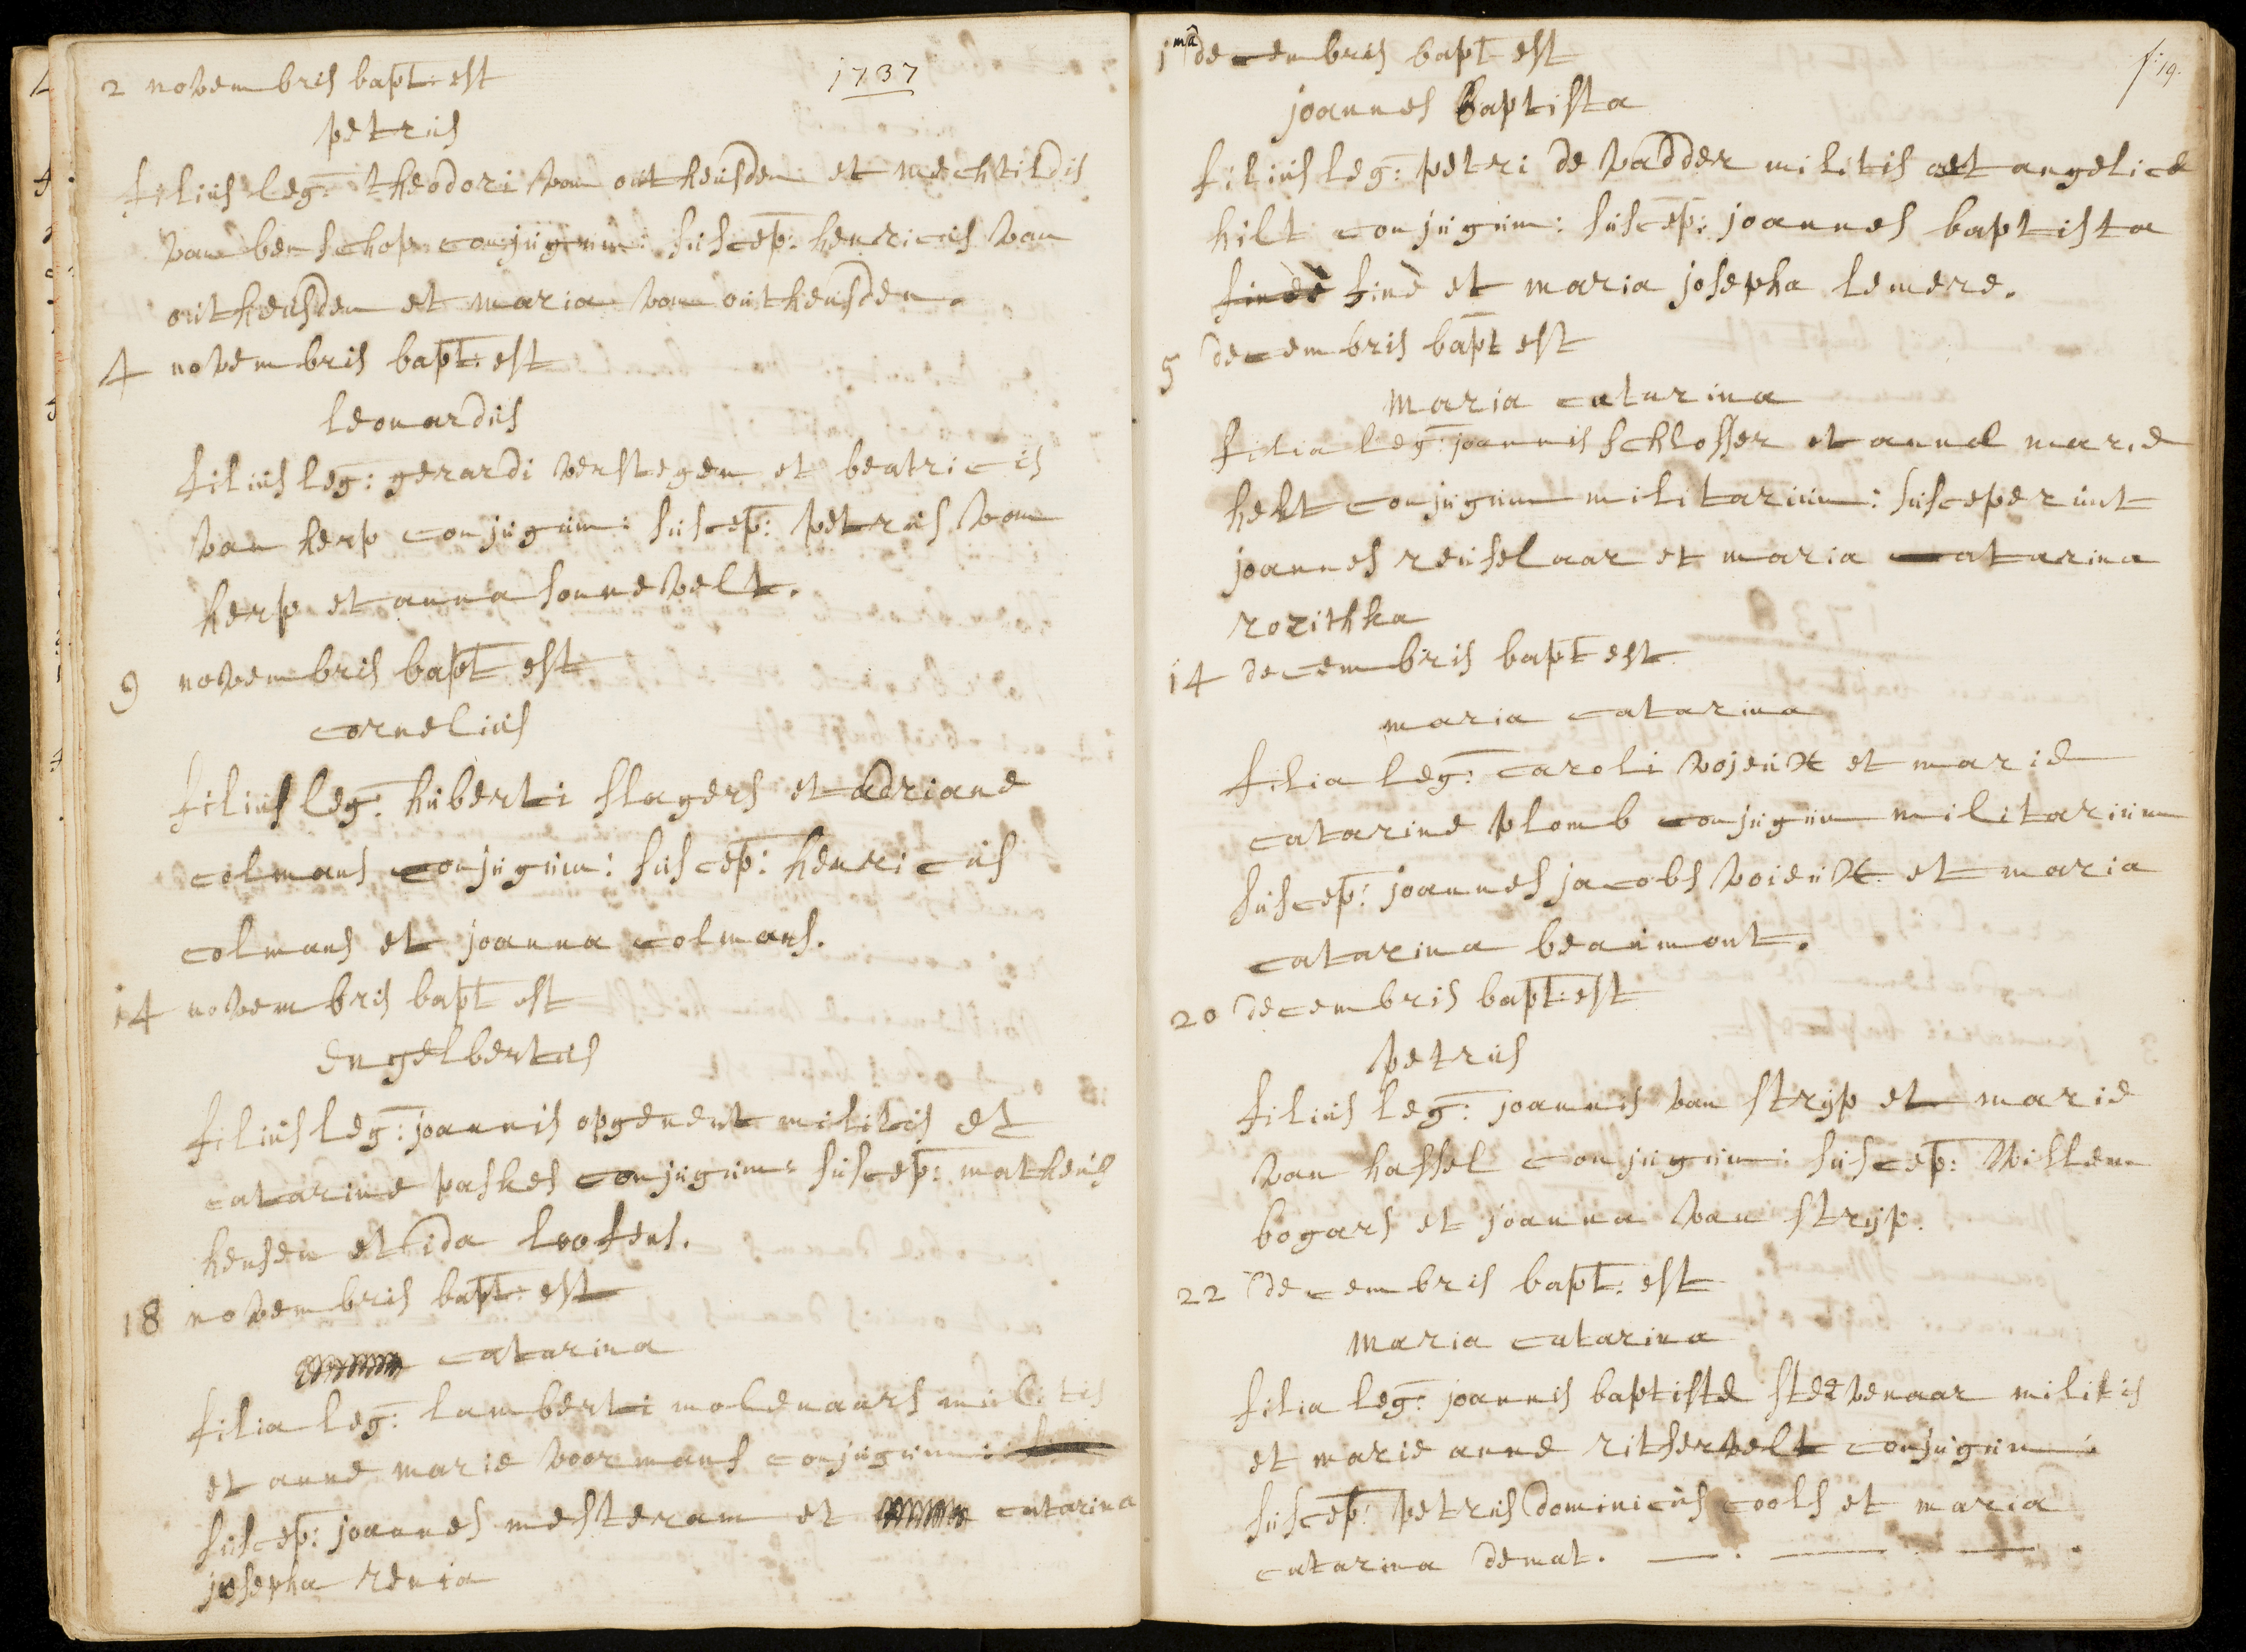 1737
2 novembris bapt: est
petrus
filius leg: theodori van outheusden et mechtildis
van benschop conjugum: suscep: henricus van
outheusden et maria van outheusden.
4 novembris bapt: est
leonardus
filius leg: gerardi verstegen et beatricis
van herp conjugum: suscep: petrus van
herp et anna sonnevelt.
9 novembris bapt est
cornelius
filius leg: huberti slagers et adriane
colmans conjugum: suscep: henricus
colmans et joanna colmans.
14 novembris bapt est
engelbertus
filius leg: joannis opgenent militis et
catarine paskes conjugum: suscep: matheus
hensen et ida loofens.
18 novembris bapt: est
catarina
filia leg: lamberti molenaars militis
et anne marie voormans conjugum:
suscep: joannes mesteram et catarina
josepha renia
f: 19.
1ma decembris bapt est
joannes baptista
filius leg: petri de vadder militis et angelice
hilt conjugum: suscep: joannes baptista
finè et maria josepha lemere.
5 decembris bapt est
maria catarina
filia leg: joannis schlosser et anne marie
hekt conjugum militarium: susceperunt
joannes reuselaar et maria catarina
rozithka
14 decembris bapt est
maria catarina
filia leg: caroli vojeux et marie
catarine plomb conjugum militarium
suscep: joannes jacobs voieux et maria
catarina beaumont.
20 decembris bapt: est
petrus
filius leg: joannis van strijp et marie
van hassel conjugum: suscep: willem
bogars et joanna van strijp.
22 decembris bapt: est
maria catarina
filia leg: joannis baptiste stevenaar militis
et marie anne ritservelt conjugum:
suscep: petrus dominicus cools et maria
catarina demat.